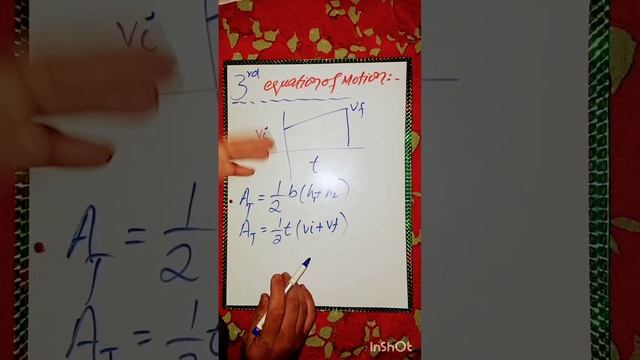 3rd equation of Motion:-
vf
vi
t
A_T = 1/2 b (h1 + h2)
A_T = 1/2 t (vi + vf)
InShOt